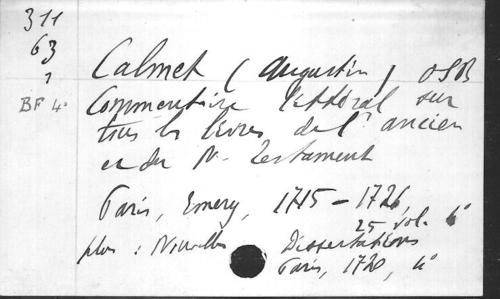 311
63
1
BF 4°
Calmet (Augustin) OSB
Commentaire littéral sur
tous les livres de l'ancien
et du N. Testament
Paris, Emery, 1715-1726,
25 vol. 4°
plus : Nouvelles Dissertations
Paris, 1720, 4°